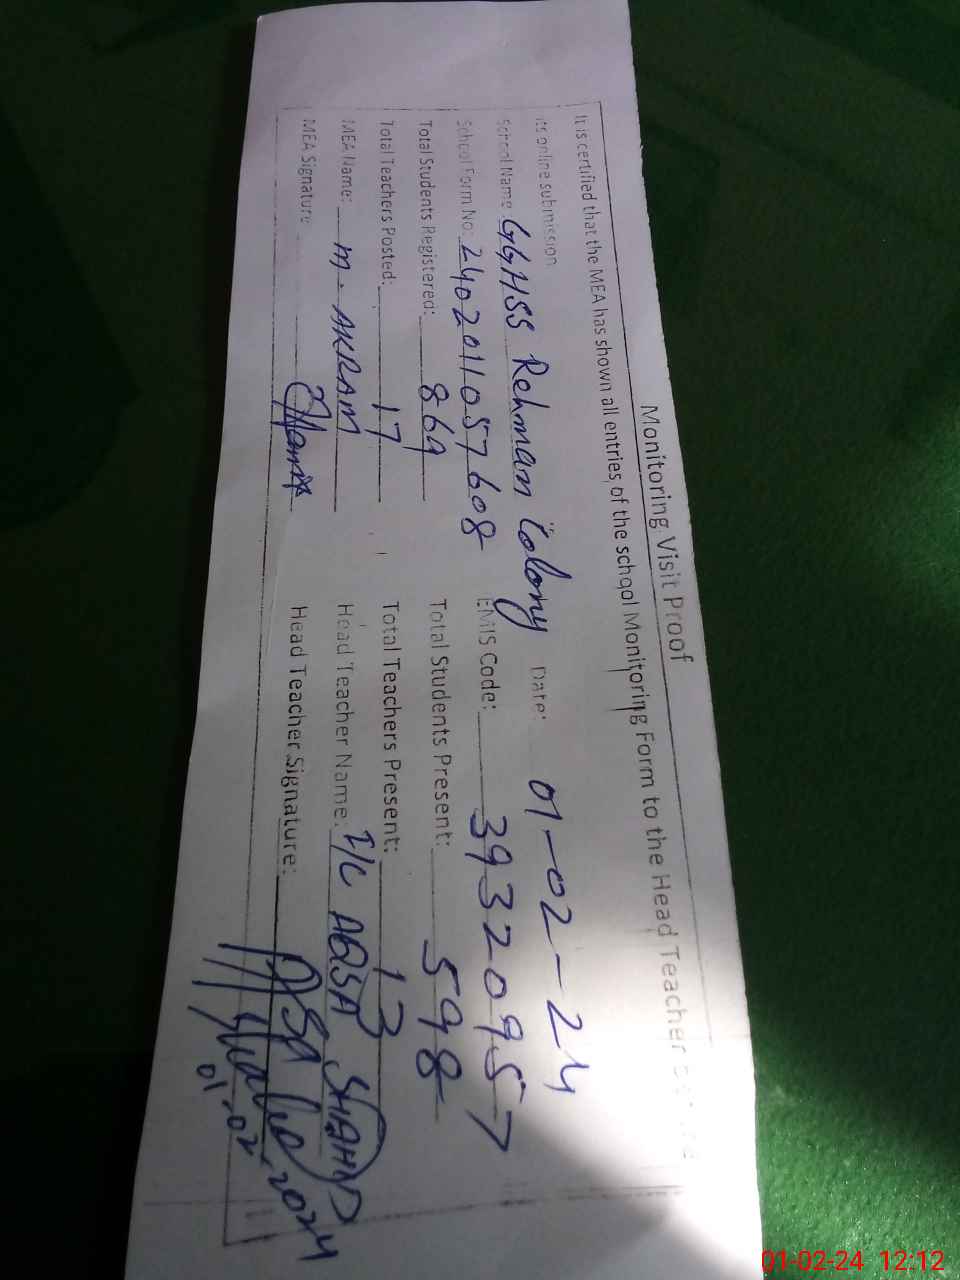 Monitoring Visit Proof
It is certified that the MEA has shown all entries of the school Monitoring Form to the Head Teacher
its online submission
School Name: GGHSS Rehman Colony Date: 01-02-24
School Form No: 2402011057608 EMIS Code: 39320957
Total Students Registered: 869 Total Students Present: 598
Total Teachers Posted: 17 Total Teachers Present: 13
MEA Name: M. AKRAM Head Teacher Name: I/C AQSA SHAHID
MEA Signature Head Teacher Signature:
01-02-2024
01-02-24 12:12